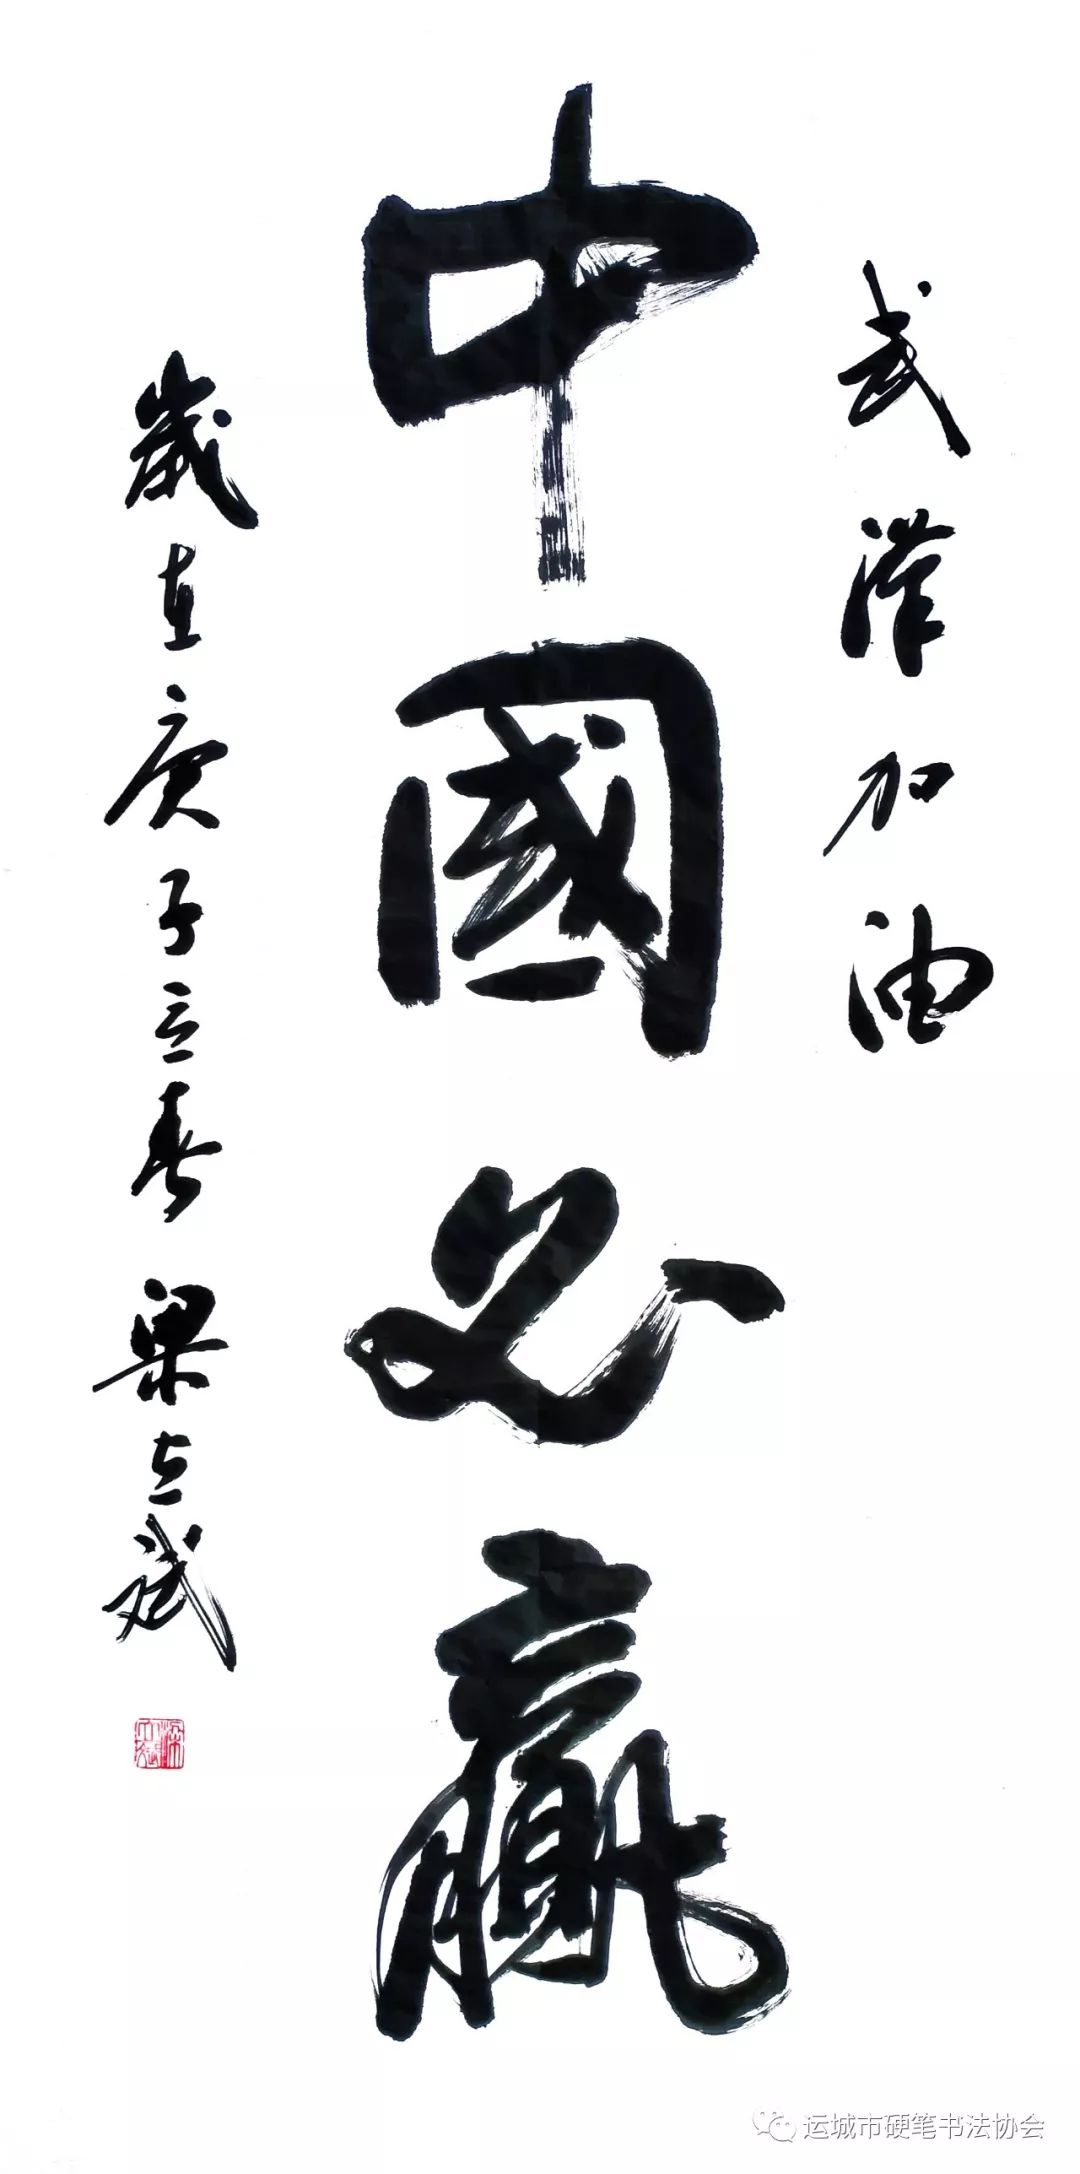 武漢加油
中國必贏
歲在庚子立春 梁志斌
运城市硬笔书法协会